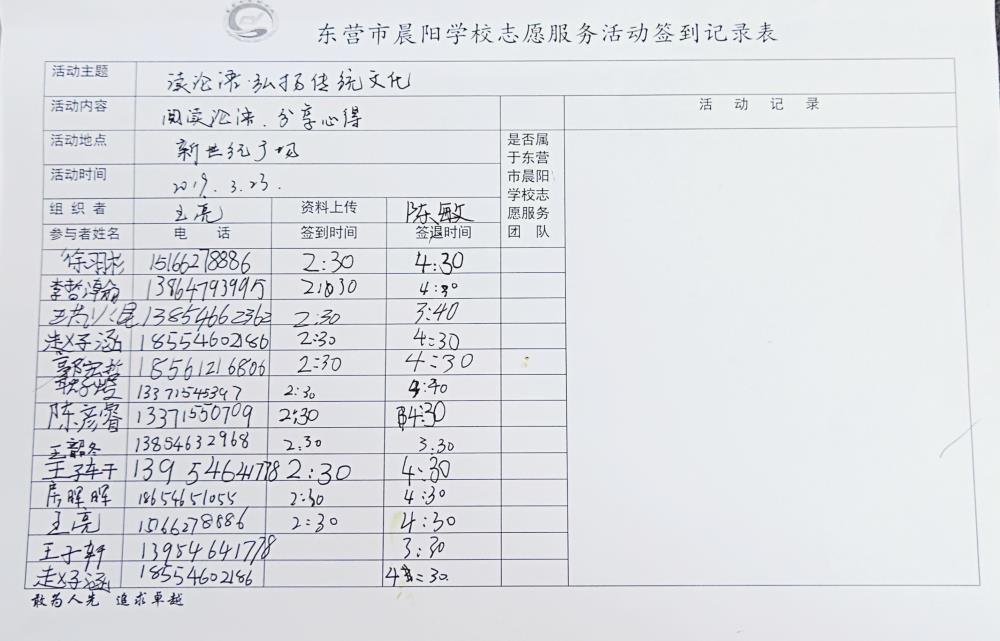 东营市晨阳学校志愿服务活动签到记录表
活动主题 读论语·弘扬传统文化
活动内容 阅读论语、分享心得 活动记录
活动地点 新世纪广场
活动时间 2019.3.23.
是否属
于东营
市晨阳
学校志
愿服务
团队
组织者 王亮 资料上传 陈敏
参与者姓名 电话 签到时间 签退时间
徐羽彬 15166278886 2:30 4:30
李哲瀚 13864793995 2:30 4:30
13854662362 2:30 3:40
赵子涵 18554602186 2:30 4:30
郭宏哲 18561216806 2:30 4:30
13371545397 2:30 4:40
陈彦睿 13371550709 2:30 4:30
王韶冬 13854632968 2:30 3:30
王子轩 13954641778 2:30 4:30
房晖晖 18654651055 2:30 4:30
王亮 15166278886 2:30 4:30
王子轩 13954641778 3:30
赵子涵 18554602186 4:30
敢为人先 追求卓越